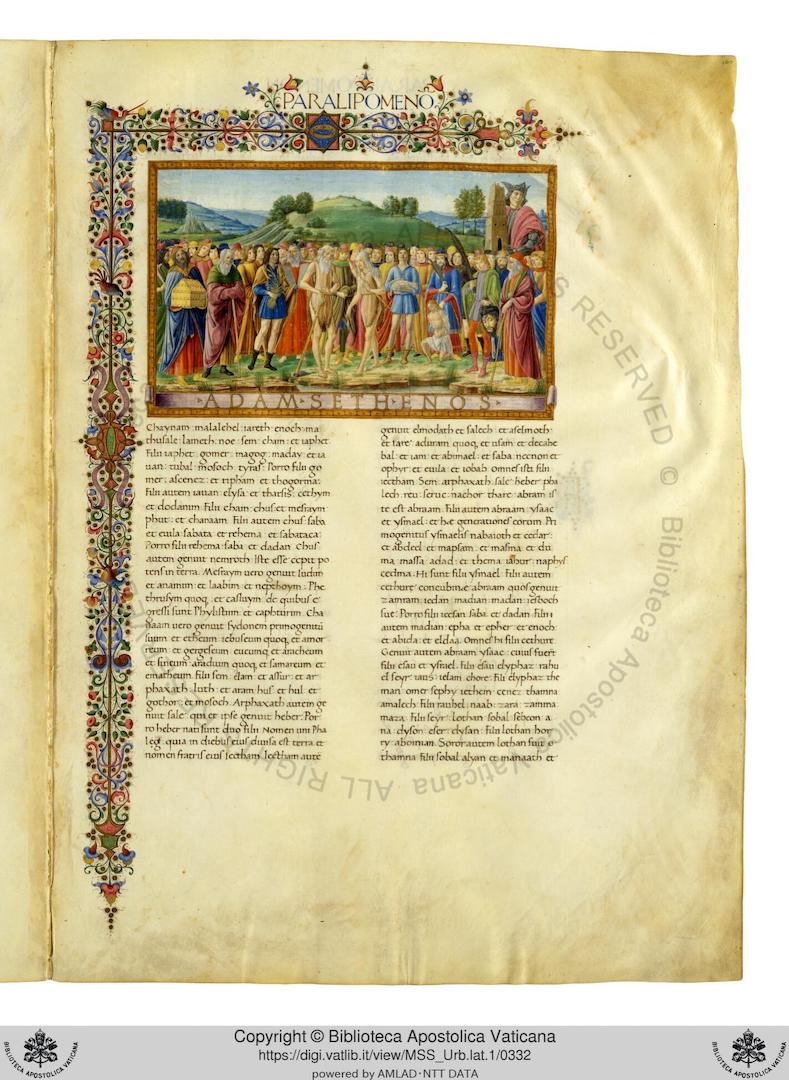 PARALIPOMENO.
ADAM·SETH·ENOS·
Chaynam: malalehel: iareth: enoch: ma
thusale: lameth: noe: sem: cham: et iaphet.
Filii iaphet: gomer: magog: maday: et ia
uan: tubal: mosoch: tyras. Porro filii go
mer: ascenez: et ripham: et thogorma.
Filii autem iauan: elysa et tharsis: cethym
et dodanim. Filii cham: chus: et mesraym
phut: et chanaam. Filii autem chus: saba
et euila sabata et rehema: et sabataca.
Porro filii rehema: saba: et dadan. Chus
autem genuit nemroth. Iste esse cepit po
tens in terra. Mesraym uero genuit ludim
et anamim: et laabim: et nepthoym: Phe
thrusym quoq; et casluym: de quibus e
gressi sunt Phylistiim: et capthurim. Cha
naam uero genuit sydonem primogenitū
suum: et etheum: iebuseum quoq; et amor
reum: et gergeseum: eueumq; et aracheum
et sineum: aradium quoq; et samareum: et
ematheum. Filii sem: elam: et assur: et ar
phaxath: luth: et aram: hus: et hul: et
gothor: et mosoch. Arphaxath autem ge
nuit sale: qui et ipse genuit heber. Por
ro heber nati sunt duo filii. Nomen uni Pha
leg: quia in diebus eius diuisa est terra: et
nomen fratris eius iectham. Iectham autē
genuit elmodath: et salech: et aselmoth:
et iare: aduram quoq; et usam: et decahe
bal: et iam: et abimael: et saba: necnon et
ophyr: et euila: et iobab. Omnes isti filii
iectham. Sem: arphaxath: sale: heber: pha
lech: reu: seruc: nachor: thare: abram: is
te est abraam. Filii autem abraam: ysaac
et ysmael: et he generationes eorum. Pri
mogenitus ysmaelis nabaioth: et cedar:
et abdeel: et mapsam: et masma: et du
ma: massa: adad: et thema: iabur: naphys
cedma. Hi sunt filii ysmael. Filii autem
cethure concubine abraam quos genuit
zamram: iedan: madian: madan: iesboch
sue. Porro filii iecsan: saba: et dadan. Filii
autem madian: epha: et epher: et enoch:
et abida: et eldaa. Omnes hi filii cethure.
Genuit autem abraam ysaac: cuius fuerūt
filii esau: et ysrael. Filii esau: elyphaz: rahu
el: seyr: iaus: ielam: chore. Filii elyphaz: the
man: omer: sephy: iethem: cenez: thamna
amalech. Filii rauhel: naab: zara: zamma:
maza. Filii seyr: lothan: sobal: sebeon: a
na: dyson: eser: dysan. Filii lothan: hor
ry: abominan. Soror autem lothan fuit
thamna. Filii sobal: alyan: et manaath: et
BIBLIOTECA APOSTOLICA VATICANA
Copyright © Biblioteca Apostolica Vaticana
https://digi.vatlib.it/view/MSS_Urb.lat.1/0332
powered by AMLAD·NTT DATA
BIBLIOTECA APOSTOLICA VATICANA